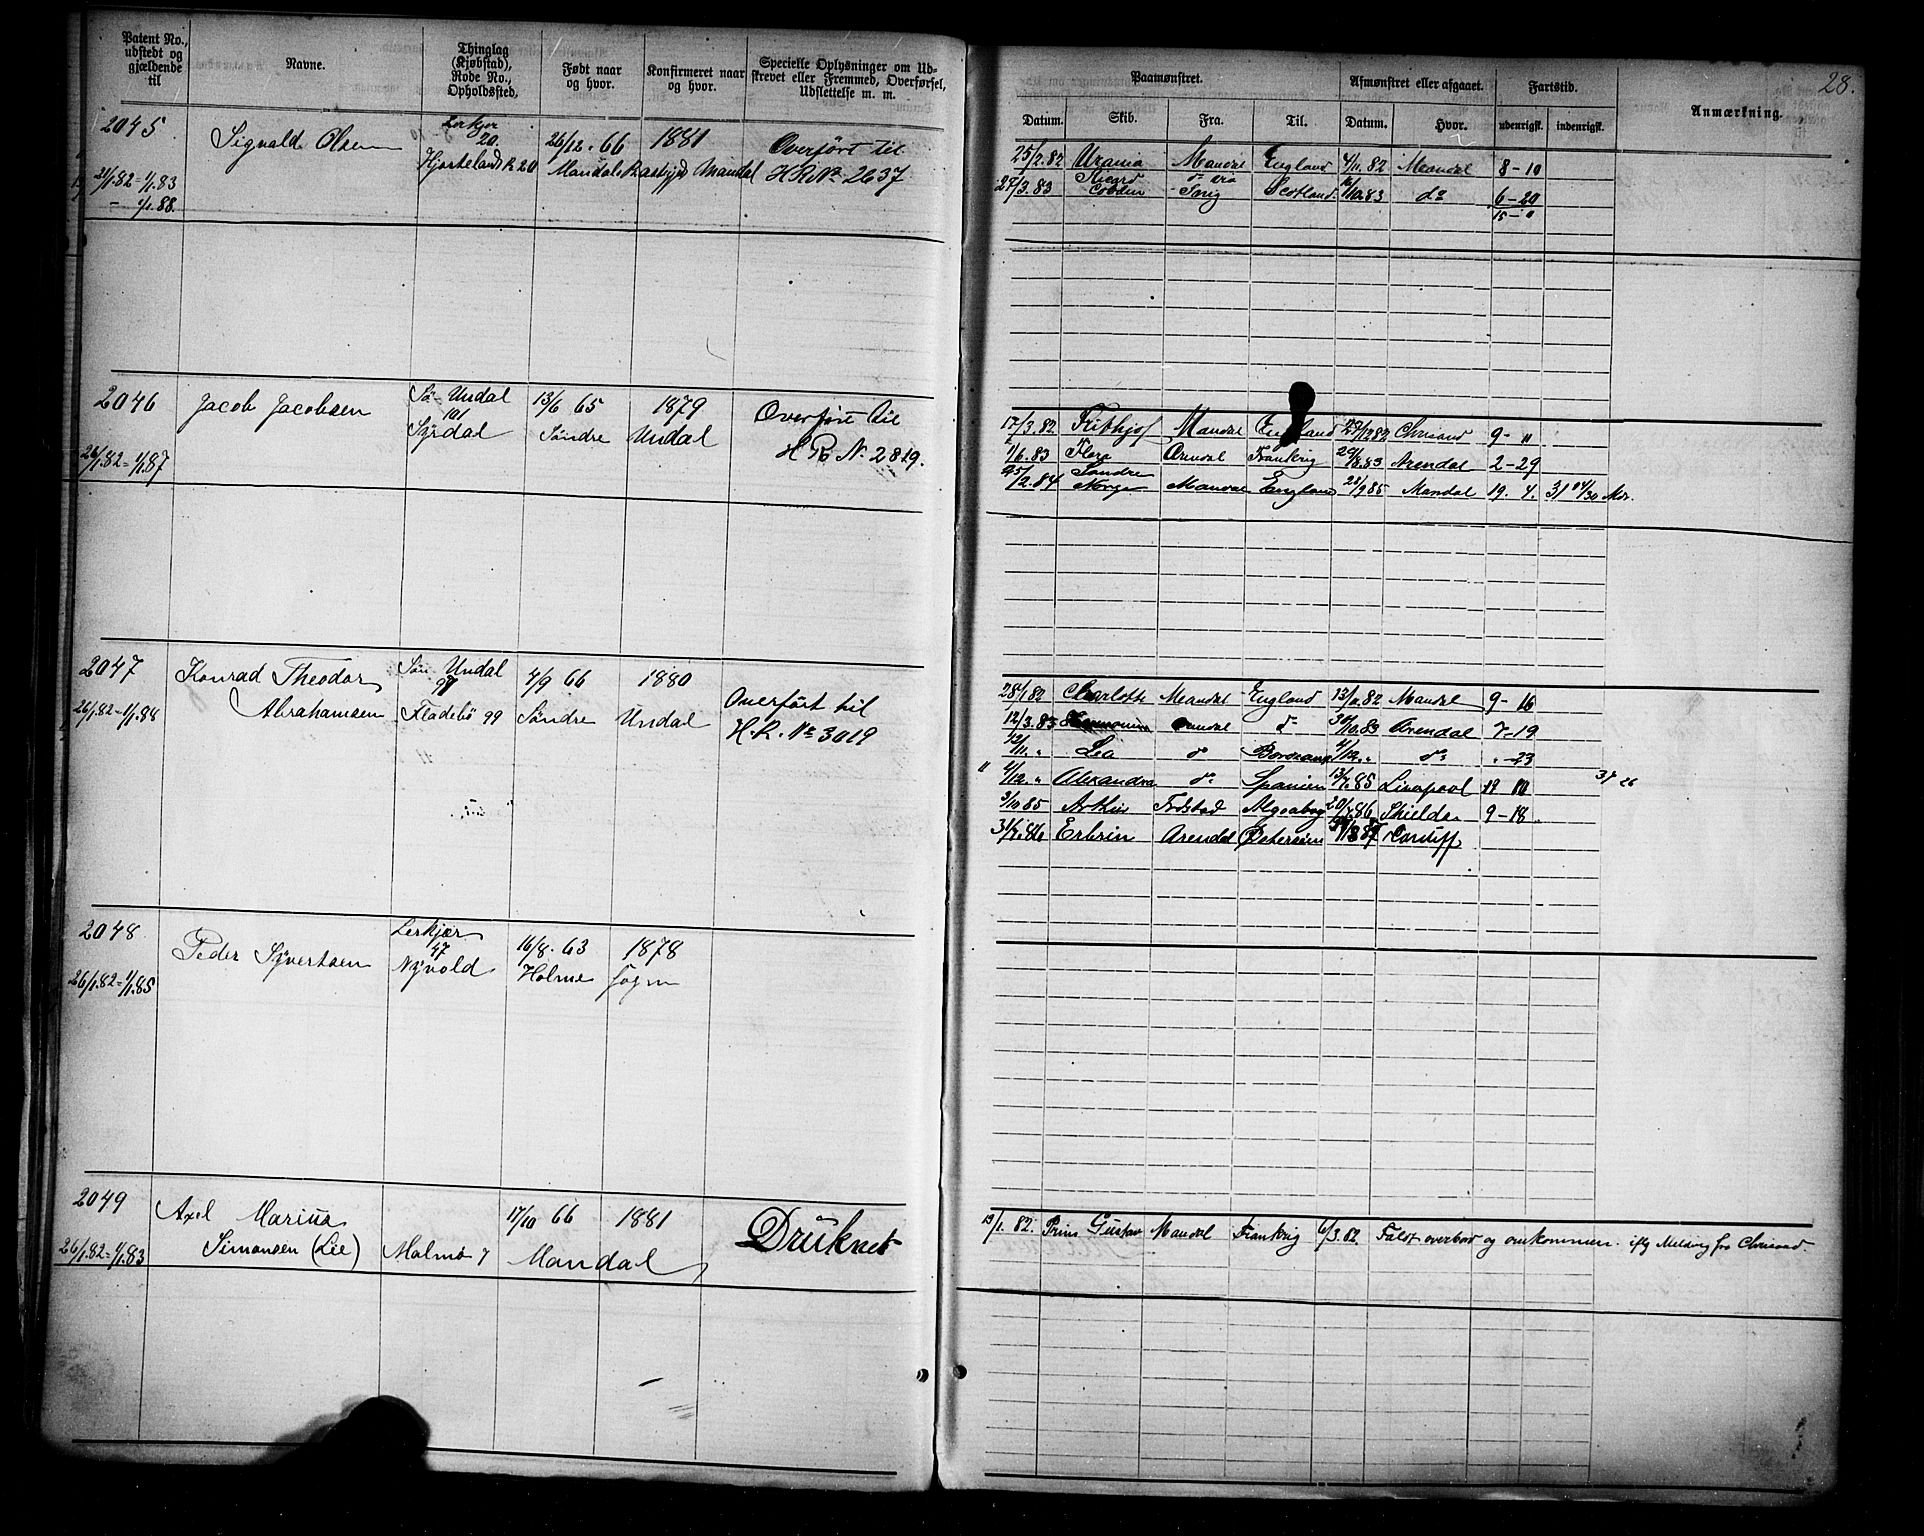 28.
Patent No., udstedt og gjældende til
Navne.
Thinglag (Kjøbstad), Rode No., Opholdssted,
Født naar og hvor.
Konfirmeret naar og hvor.
Specielle Oplysninger om Udskrevet eller Fremmed, Overførsel, Udslettelse m. m.
Paamønstret.
Afmønstret eller afgaaet.
Fartstid.
Anmærkning.
Datum. Skib. Fra. Til. Datum. Hvor. udenrigsk. indenrigsk.
2045 Sigvald Olsen 20. 26/12. 66 1881 Overført til
21/1.82 - 1/1.83 Mandal Mandal H.R. No 2637
- 1/1.88.
25/2.82 Urania Mandal England 4/11.82 Mandal 8-10
27/3.83 Cobden Scotland do 6-20
15-0
2046 Jacob Jacobsen Sø. Undal 13/6 65 1879 Overført til
101
Syrdal Søndre Undal H.R. No 2819.
26/1.82 = 1/1.87
17/3.82 Frithjof Mandal England Chrisand 9- "
1/6.83 Flora Arendal Frankrig 29/8.83 Arendal 2-29
25/2.84 Norge Mandal England Mandal 19. 4. 31
2047 Konrad Theodor Søn Undal 4/9 66 1880 Overført til
26/1.82 - 1/1.88 Abrahamsen Fladebö 99 Søndre Undal H.R. No 3019
28/1.82 Charlotte Mandal England 13/11.82 Mandal 9- 16
12/3.83 Arendal do 30/10.83 Arendal 7-19
Lea do 4/12. " do " -23
4/12. " Alexandra do Spanien 13/7.85 Liverpool 19 10 37 26
3/10 85 Arthur Fredstad Algoabay Shields 9-18.
Erbrin Arendal Cardiff
2048 Peder Syvertsen Lerkjær 16/8. 63 1878
47
26/1.82 = 1/1.85 Nyvold Holme Sogn
2049 Axel Marius 17/10 66 1881 Druknet
26/1.82 = 1/1.83 Simonsen (Lie) Malmø 7 Mandal
19/1. 82. Prins Gustav Mandal Frankrig 6/3.82. Faldt overbord og omkommen. ifg Meldng fra Chrisand.